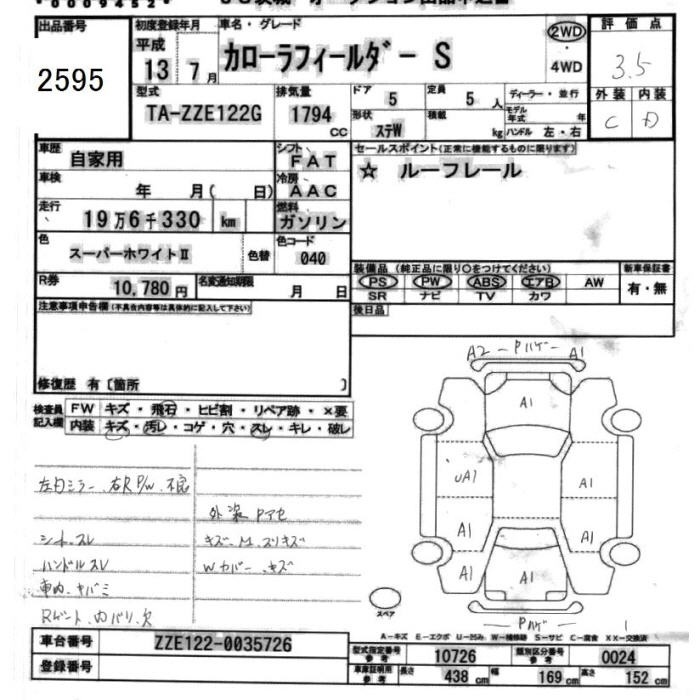 出品番号
2595
初度登録年月
平成
13年 7月
車名・グレード
カローラフィールダー S
2WD
・
4WD
評価点
3.5
外装 内装
C D
型式
TA-ZZE122G
排気量
1794 CC
ドア 5
定員 5 人
形状 ステW
積載 kg
ディーラー・並行
モデル年式 年
ハンドル 左・右
車歴 自家用
シフト FAT
車検 年 月( 日)
冷房 AAC
走行 19万6千330 km
燃料 ガソリン
色 スーパーホワイトⅡ 色替
色コード 040
R券 10,780円
名変通知期限 月 日
セールスポイント(正常に機能するものに限ります)
☆ ルーフレール
装備品 (純正品に限り○をつけてください)
PS PW ABS エアB AW
SR ナビ TV カワ
新車保証書
有・無
後日品
注意事項申告欄(不具合内容等は具体的に記入して下さい)
修復歴 有〔箇所 〕
検査員記入欄
FW キズ・飛石・ヒビ割・リペア跡・×要
内装 キズ・汚レ・コゲ・穴・スレ・キレ・破レ
左右ミラー 右R P/W 不良
シートスレ
ハンドルスレ
車内キバミ
Rゲート内バリ欠
外装 Pアセ
キズ・スリキズ
Wカバーキズ
A2 Pハゲ A1
A1
UA1
A1
A1
A1
A1
A1
A1
Pハゲ
スペア
A-キズ E-エクボ U-凹み W-補修跡 S-サビ C-腐食 XX-交換済
車台番号 ZZE122-0035726
登録番号
型式指定番号 参考 10726
類別区分番号 参考 0024
車庫証明用 参考 長さ 438 cm 幅 169 cm 高さ 152 cm